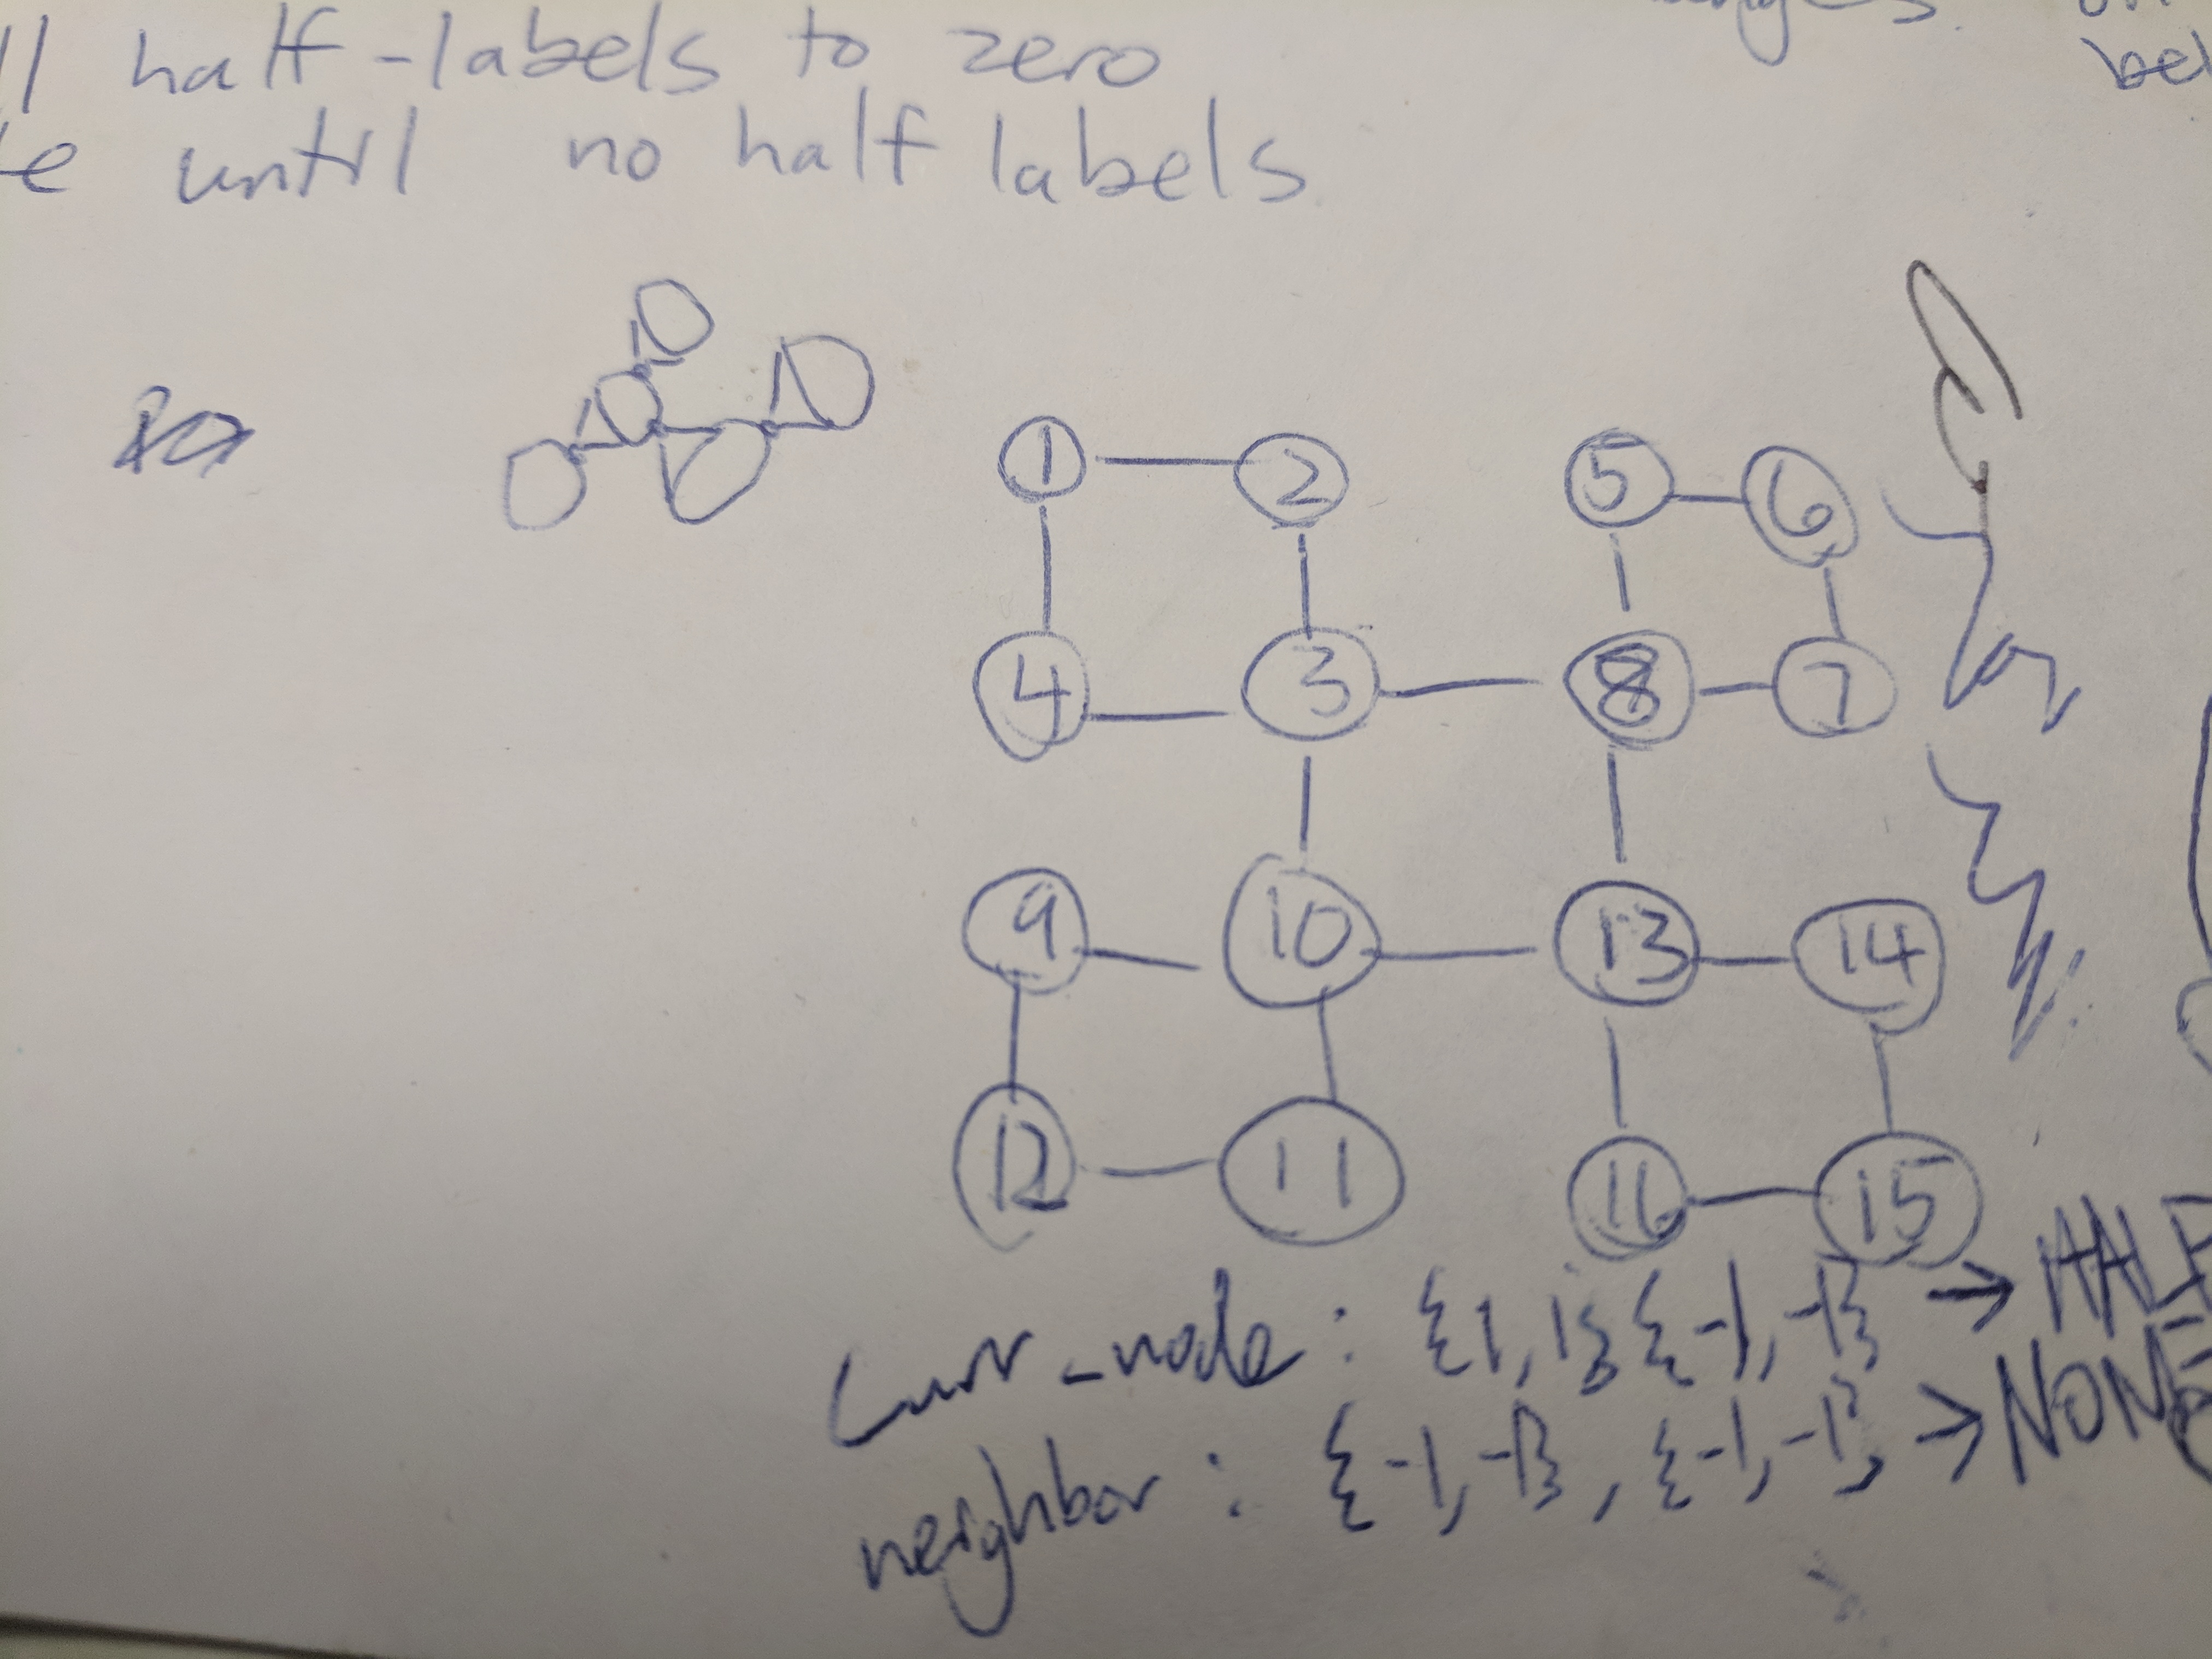 half-labels to zero
until no half labels
1 2 5 6
4 3 8 7
9 10 13 14
12 11 16 15
curr_node : {1, 1} {-1, -1} → HALF
neighbor : {-1, -1} , {-1, -1} , → NONE